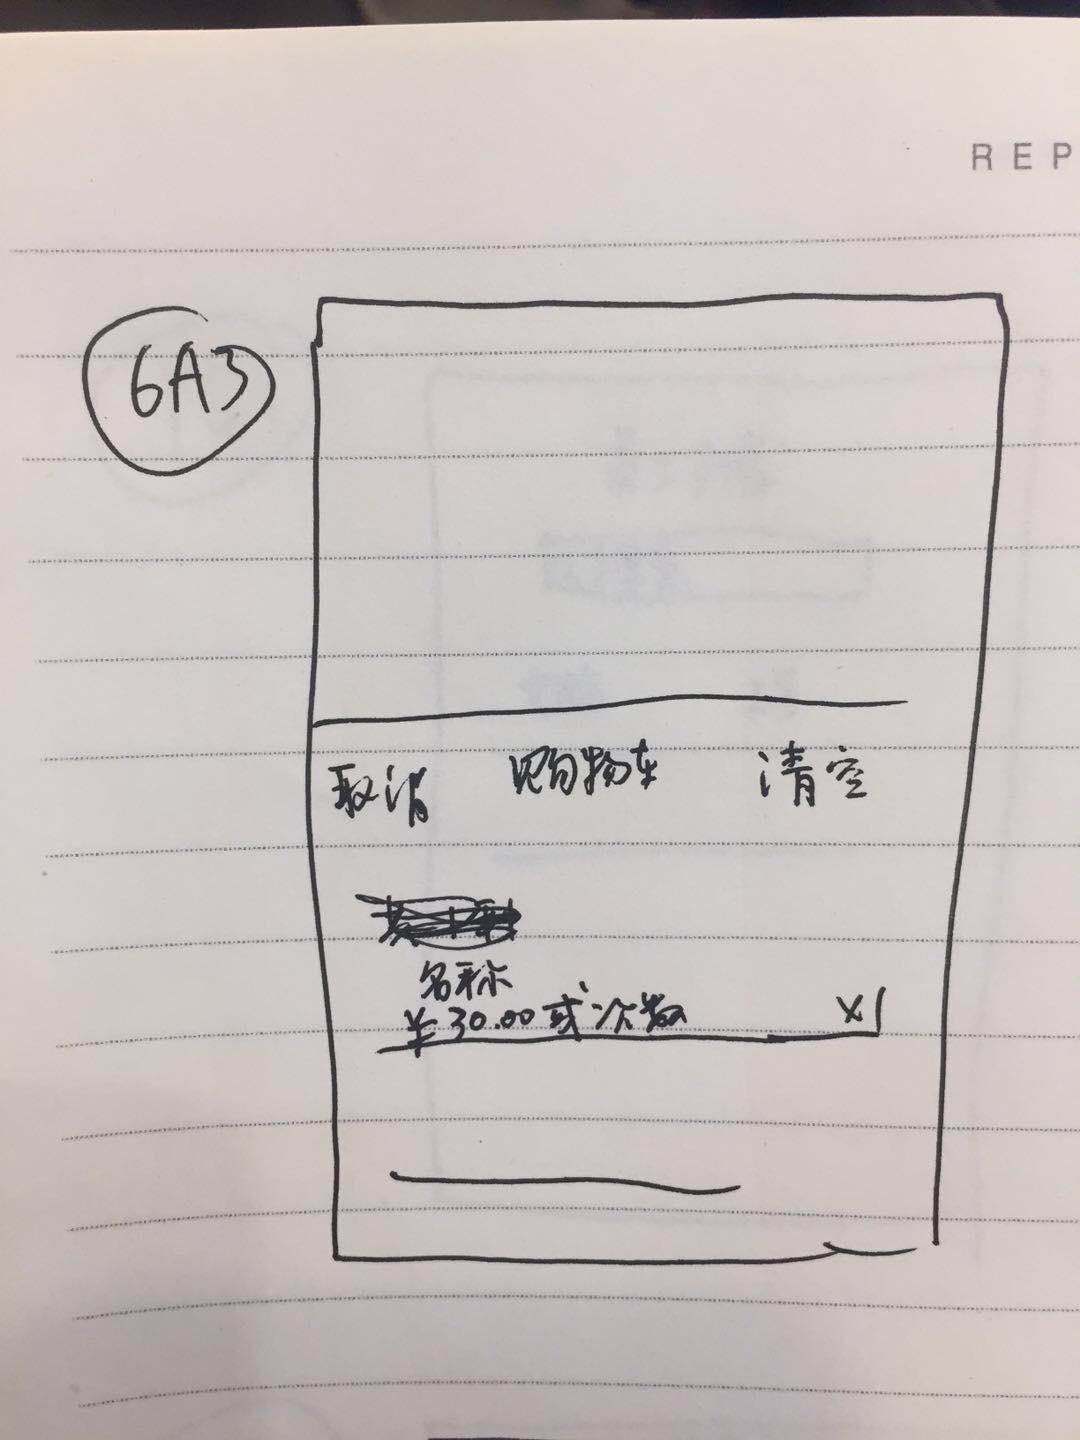 REP
6A3
取消 购物车 清空
名称
￥30.00或次数 x1